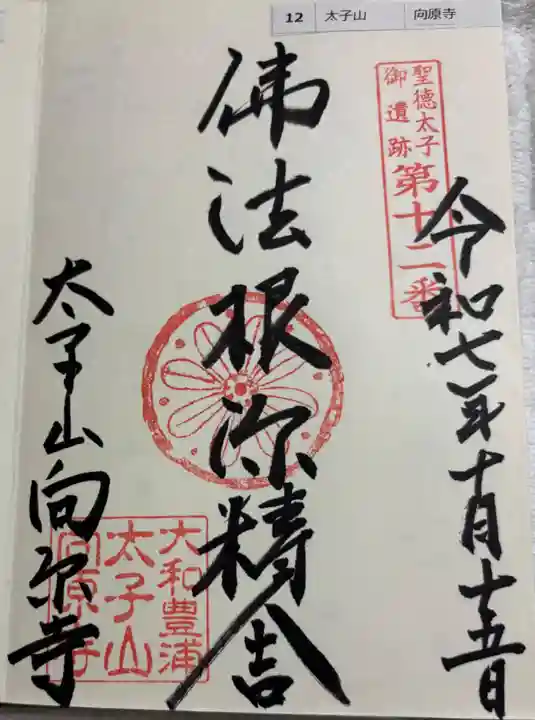 12 太子山 向原寺
聖徳太子
御遺跡
第十二番
令和七年十月十五日
佛法根源精舎
太子山向原寺
大和豊浦
太子山
向原寺